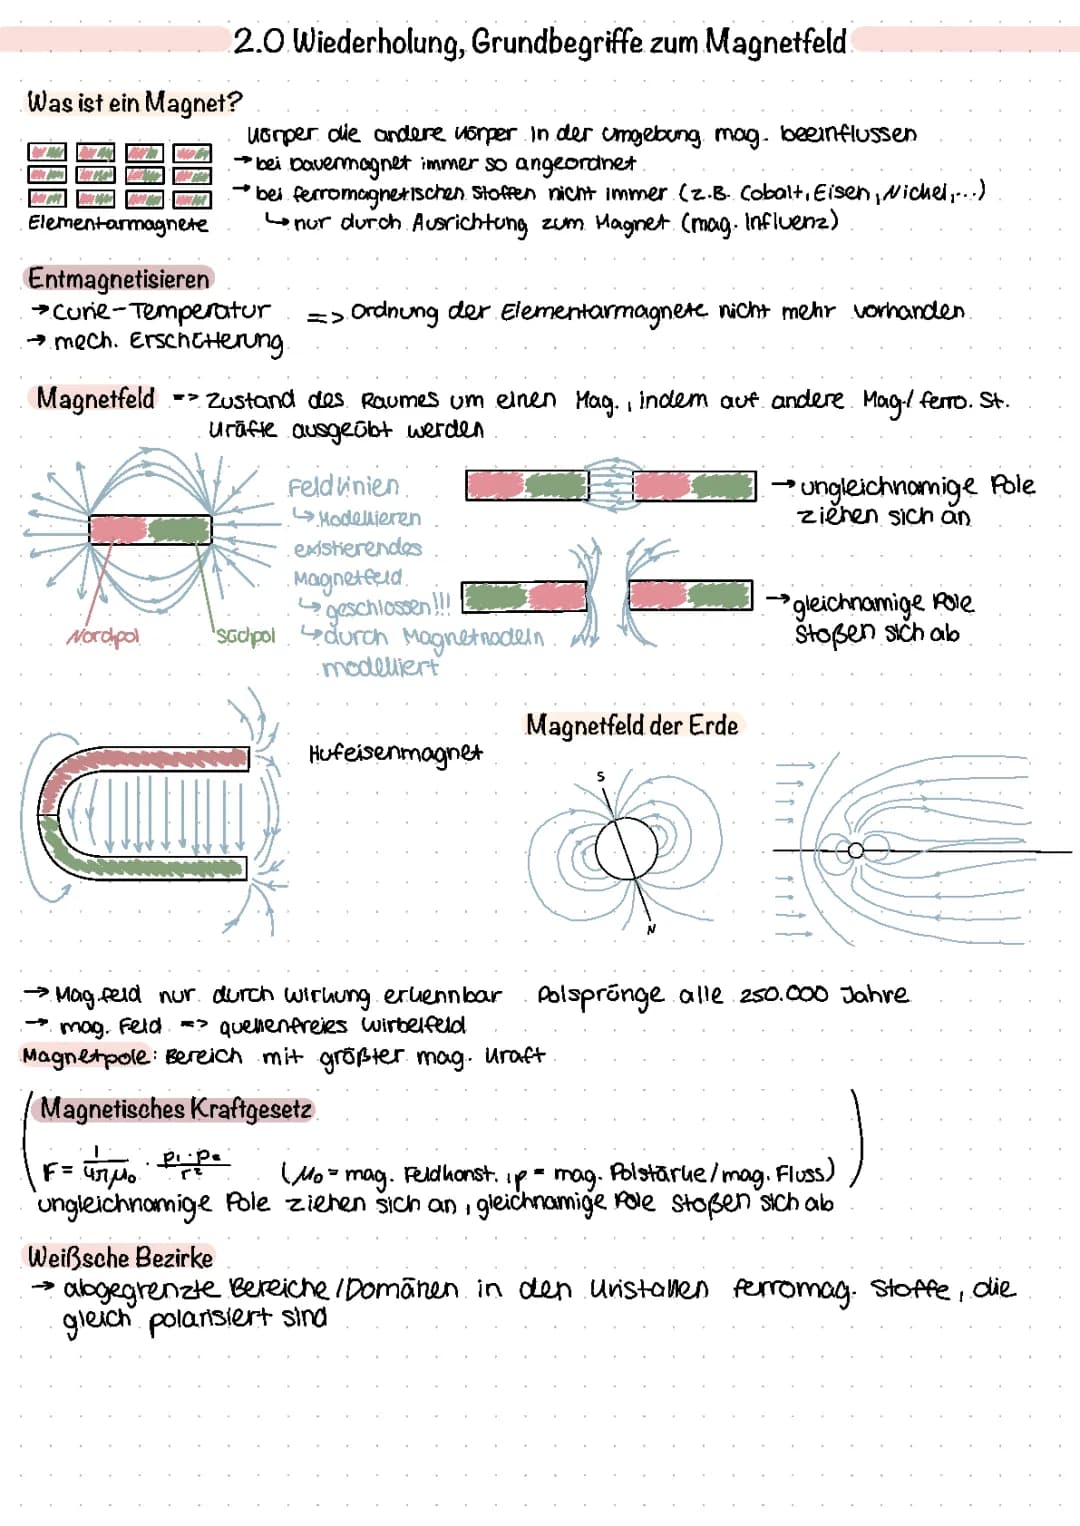 2.0 Wiederholung, Grundbegriffe zum Magnetfeld
Was ist ein Magnet?
Körper die andere Körper in der Umgebung mag. beeinflussen
→ bei Dauermagnet immer so angeordnet
→ bei ferromagnetischen Stoffen nicht immer (z.B. Cobalt, Eisen, Nickel,...)
↳ nur durch Ausrichtung zum Magnet (mag. Influenz)
Elementarmagnete
Entmagnetisieren
→ Curie-Temperatur => Ordnung der Elementarmagnete nicht mehr vorhanden
→ mech. Erschütterung
Magnetfeld => Zustand des Raumes um einen Mag., indem auf andere Mag./ferro. St.
Kräfte ausgeübt werden
Feldlinien
↳ Modellieren
existierendes
Magnetfeld
↳ geschlossen!!!
↳ durch Magnetnadeln
modelliert
Nordpol
Südpol
→ ungleichnamige Pole
ziehen sich an
→ gleichnamige Pole
stoßen sich ab
Hufeisenmagnet
Magnetfeld der Erde
S
N
→ Mag.feld nur durch Wirkung erkennbar
Polsprünge alle 250.000 Jahre
→ mag. Feld => quellenfreies Wirbelfeld
Magnetpole: Bereich mit größter mag. Kraft
Magnetisches Kraftgesetz
F = 1/4πμ₀ · p₁·p₂/r² (μ₀ = mag. Feldkonst., p = mag. Polstärke/mag. Fluss)
ungleichnamige Pole ziehen sich an, gleichnamige Pole stoßen sich ab
Weißsche Bezirke
→ abgegrenzte Bereiche/Domänen in den Kristallen ferromag. Stoffe, die
gleich polarisiert sind